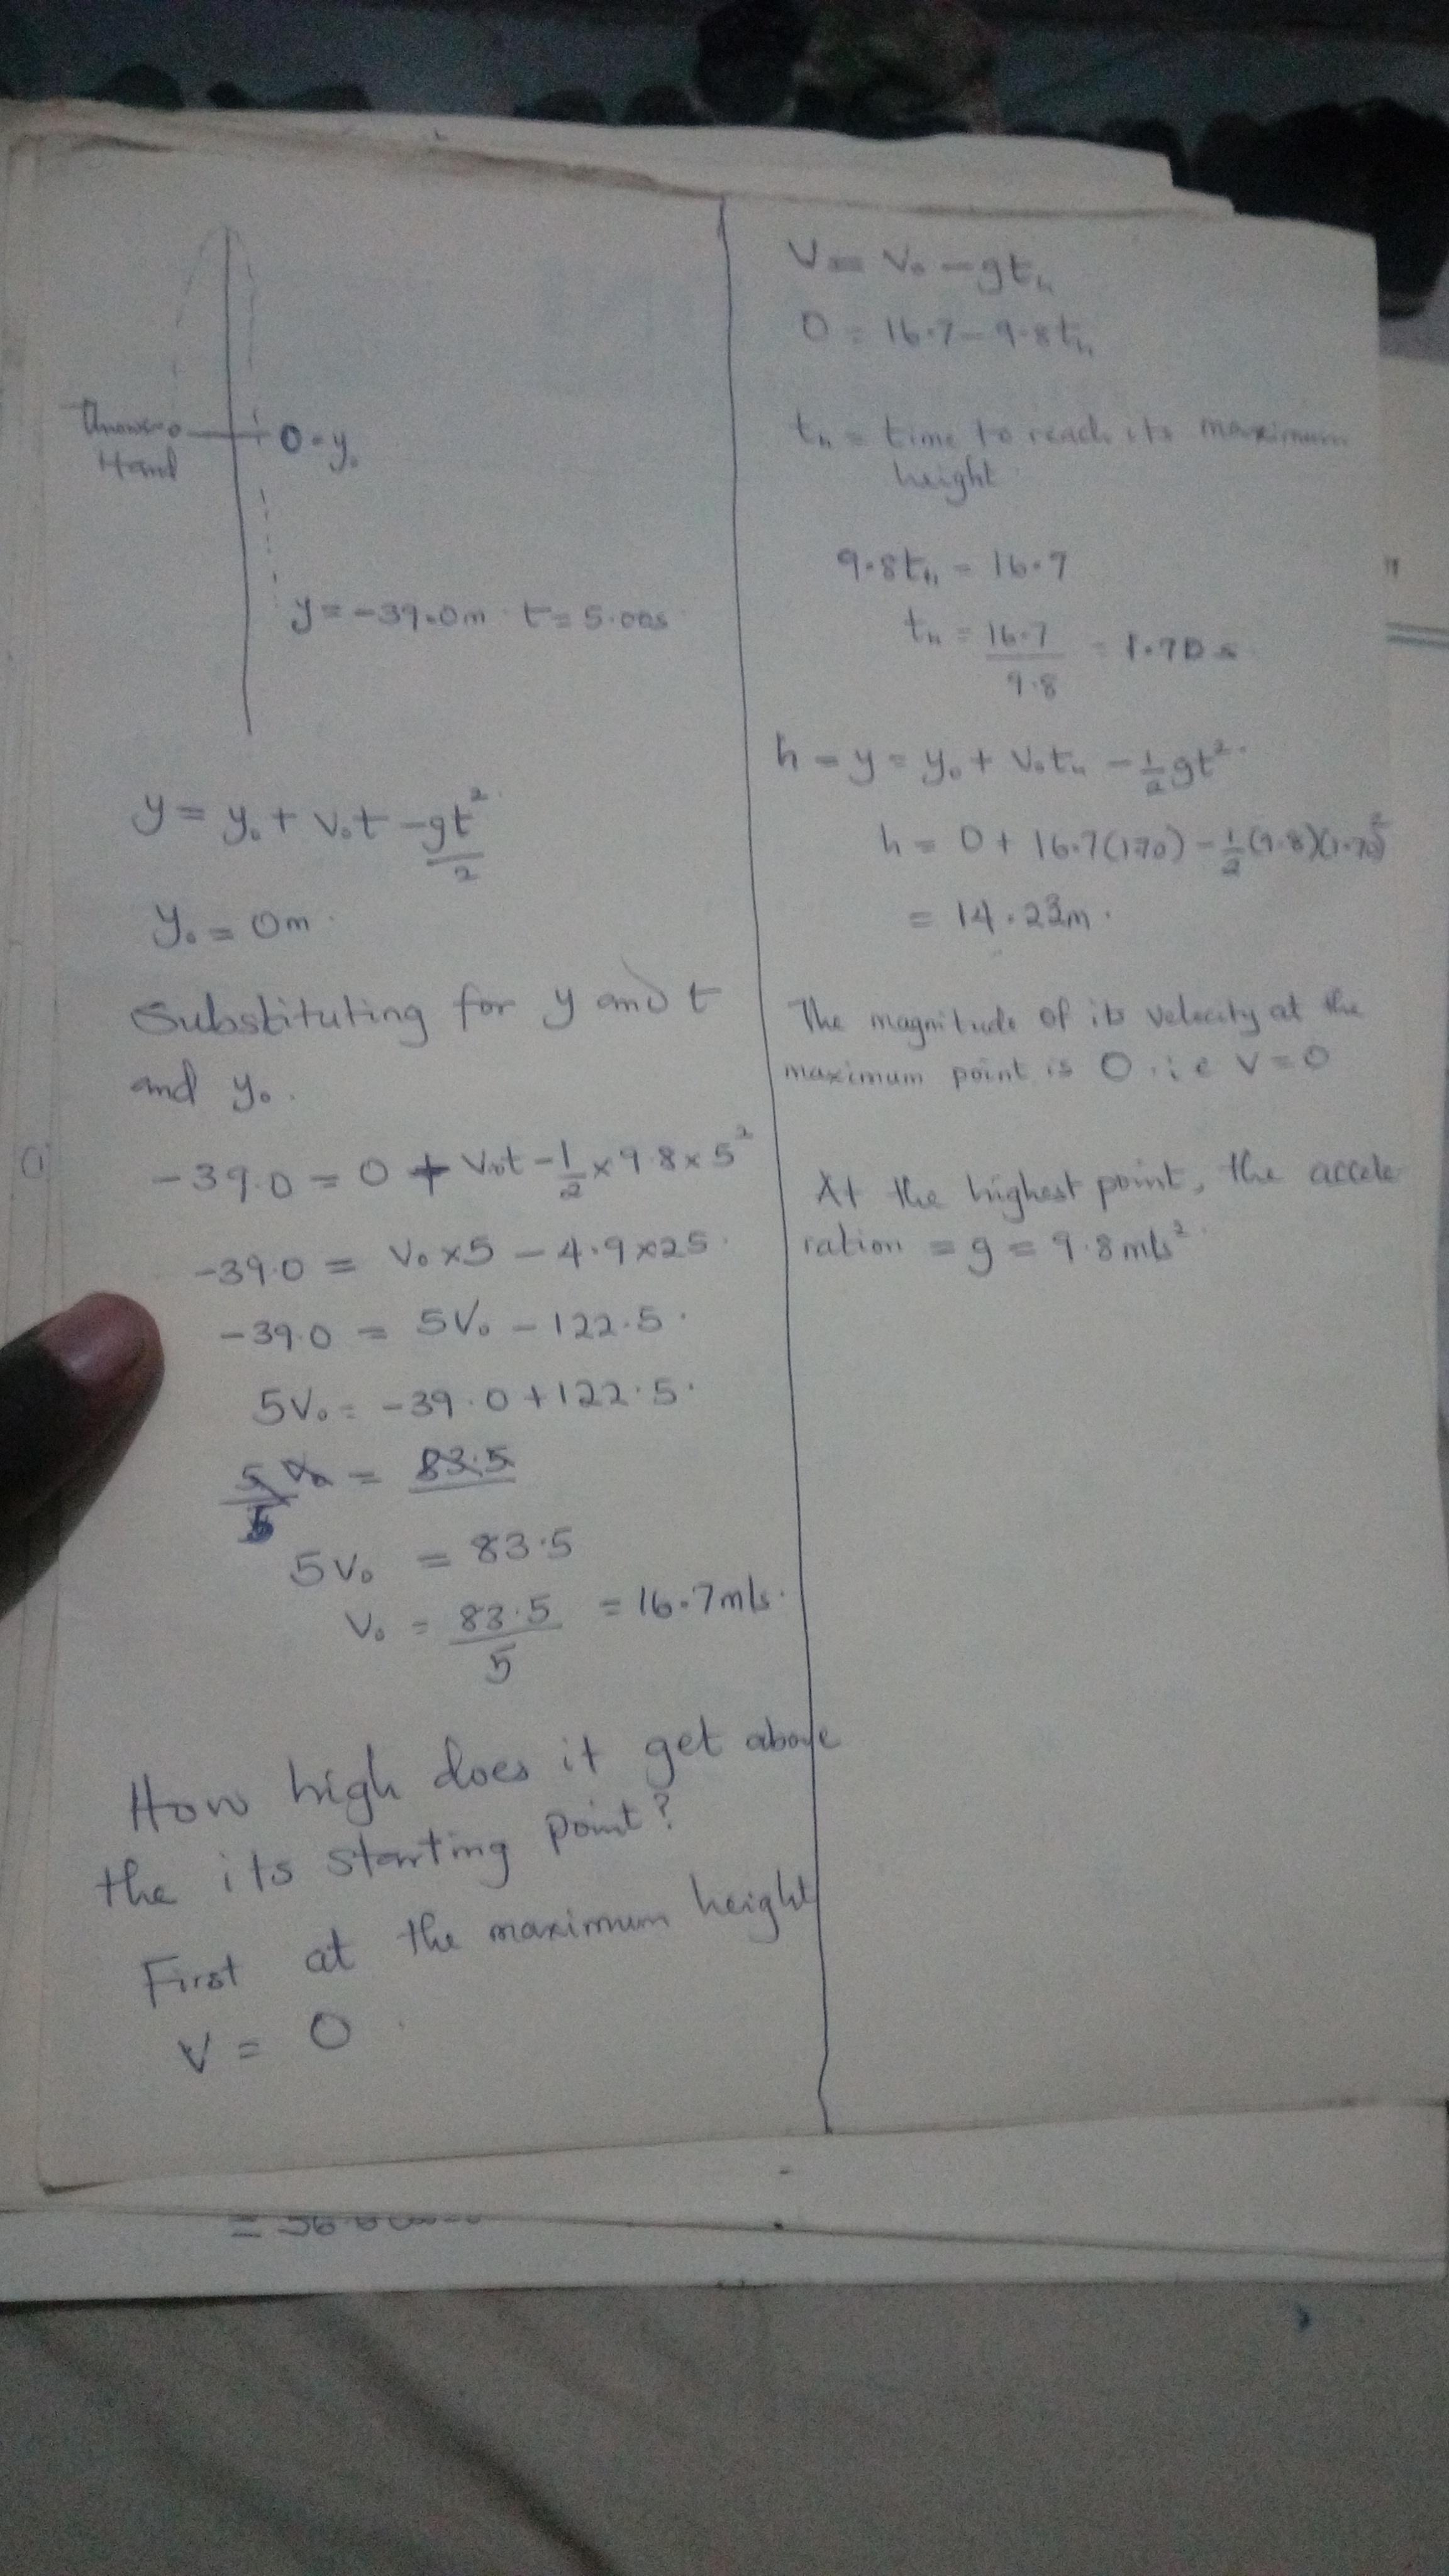 Hand
0 = y₀
y = -39.0m t = 5.00s
y = y₀ + v₀t - gt²/2
y₀ = 0m
Substituting for y and t
and y₀.
-39.0 = 0 + v₀t - 1/2 × 9.8 × 5²
-39.0 = v₀ × 5 - 4.9 × 25
-39.0 = 5v₀ - 122.5
5v₀ = -39.0 + 122.5
5v₀/5 = 83.5
5v₀ = 83.5
v₀ = 83.5/5 = 16.7m/s.
How high does it get above
the its starting point?
First at the maximum height
V = 0
V = v₀ - gtₕ
0 = 16.7 - 9.8tₕ
tₕ = time to reach its maximum
height
9.8tₕ = 16.7
tₕ = 16.7/9.8 = 1.70 s
h = y = y₀ + v₀tₕ - 1/2 gt²
h = 0 + 16.7(1.70) - 1/2(9.8)(1.70)²
= 14.23m.
The magnitude of its velocity at the
maximum point is 0. i.e V = 0
At the highest point, the accele
ration = g = 9.8m/s².